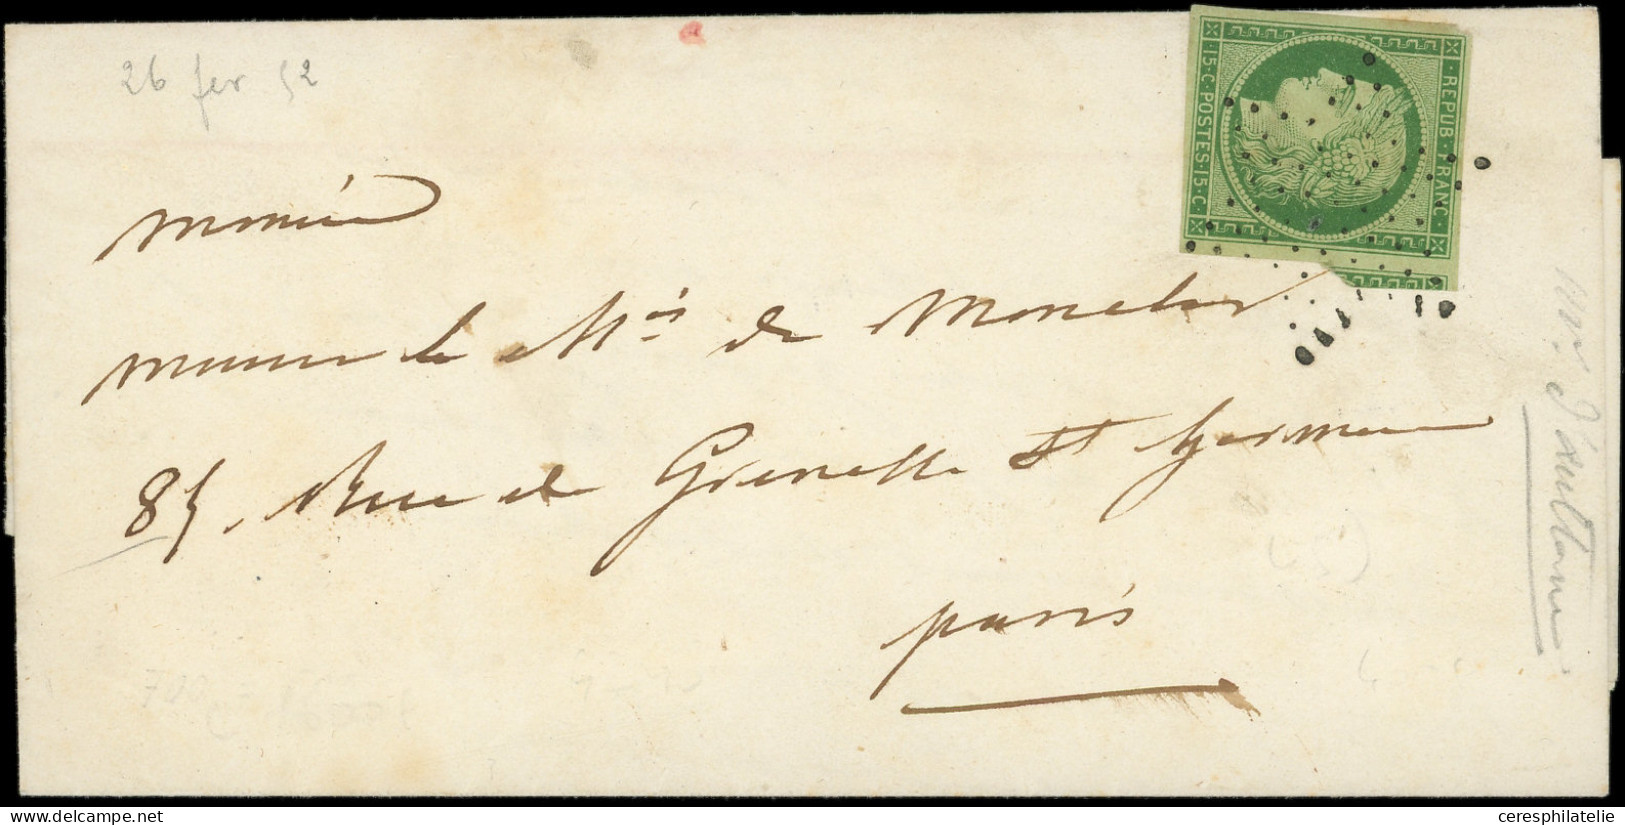 26 fev 52
REPUB · FRANC ·
15 · C · POSTES 15 · C ·
Monsieur
Monsieur le Mis de
85, Rue de Grenelle St Germain
Paris
ceresphilatelie